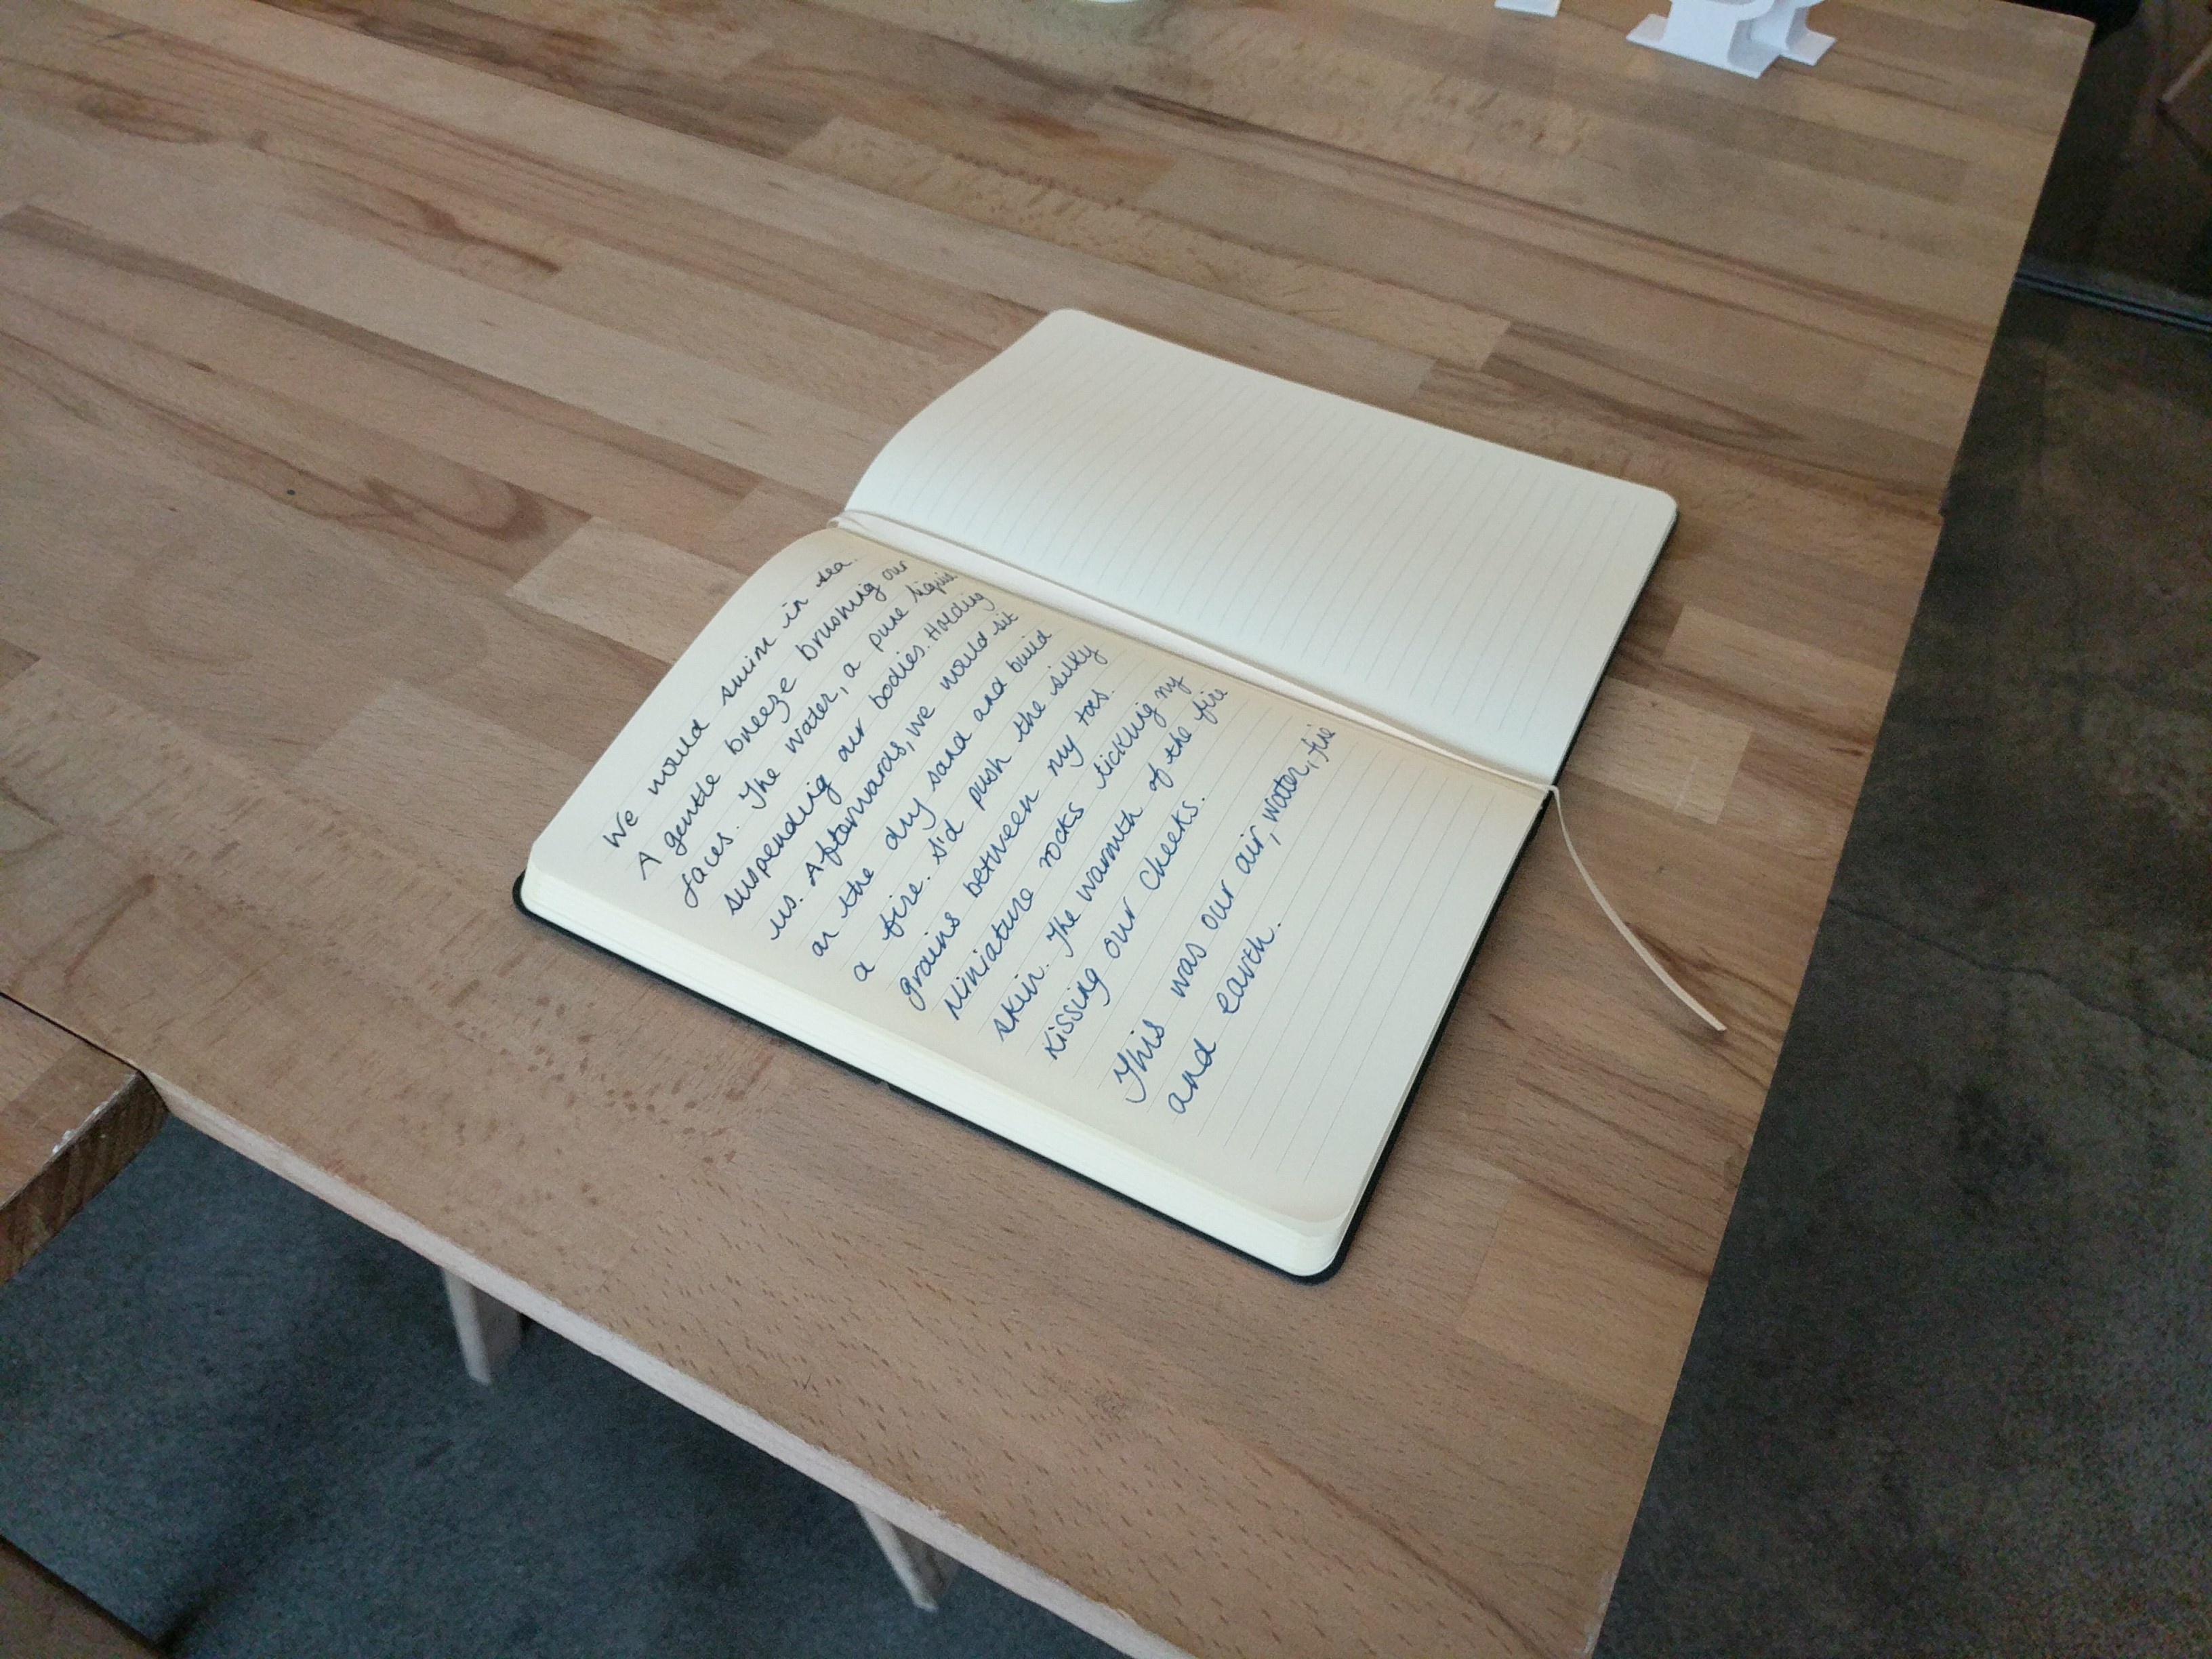 We would swim in sea.
A gentle breeze brushing our
faces. The water, a pure liquid
suspending our bodies. Holding
us. Afterwards, we would sit
on the dry sand and build
a fire. I'd push the silky
grains between my toes.
Miniature rocks tickling my
skin. The warmth of the fire
kissing our cheeks.
This was our air, water, fire
and earth.